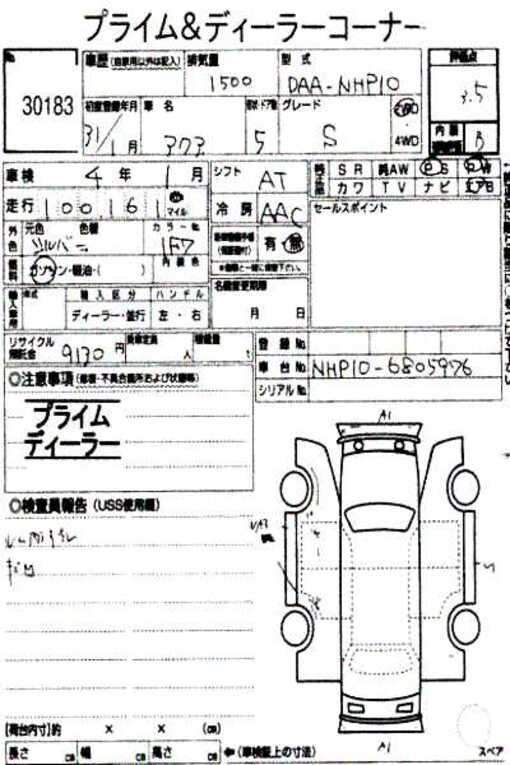 プライム&ディーラーコーナー
No
30183
車歴 (自家用以外は記入)
排気量
1500
型式
DAA-NHP10
評価点
3.5
初度登録年月
31/1月
車名
ドア数
5
グレード
S
2WD
4WD
内装
B
車検
4年 1月
シフト
AT
SR
純AW
PS
PW
カワ
TV
ナビ
エアB
走行
100,161
マイル
冷房
AAC
セールスポイント
外色
元色
色替
カラーNo
シルバー
1F7
有・無
燃料
ガソリン・軽油・( )
内装色
名義変更期限
月 日
輸入車用
年式
輸入区分
ハンドル
ディーラー・並行
左・右
リサイクル預託金
9130円
乗車定員
人
積載量
t
登録No.
車台No.
NHP10-6805976
シリアルNo.
◎注意事項 (修理・不具合箇所および状態等)
プライム
ディーラー
◎検査員報告 (USS使用欄)
A1
S
A1
スペア
[荷台内寸]約 × × (cm)
長さ cm 幅 cm 高さ cm ←(車検証上の寸法)